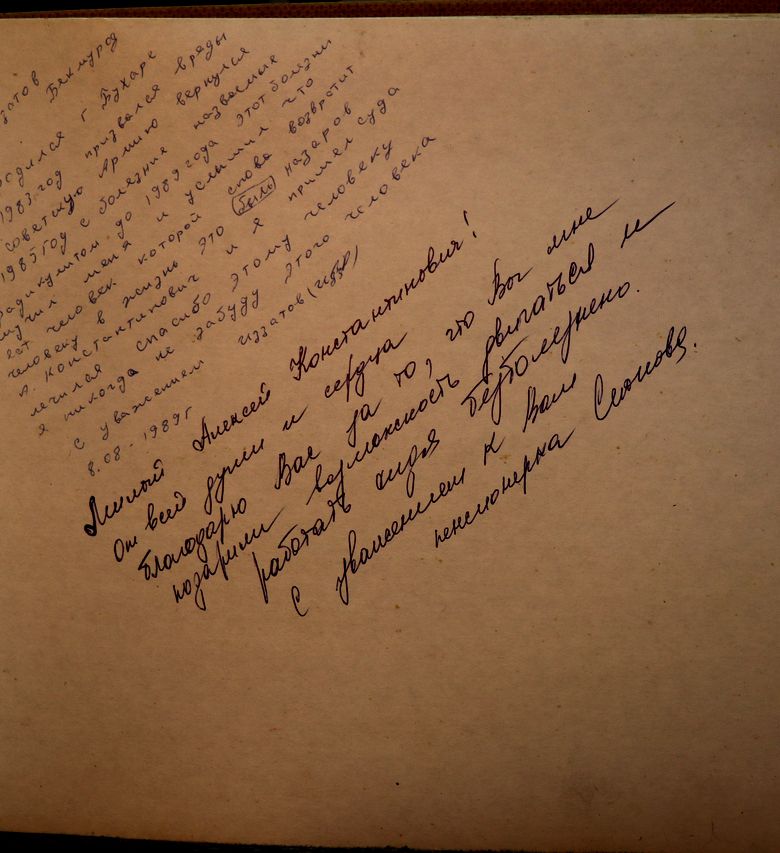 Бекмурод
г Бухаре
1983 год призвался вряды
советскую Армию вернулся
1985 год с болезние назваемые
радикулитом до 1989 года этот болезни
мучил меня и услышил что
ест человек которой снова возвратит
человеку в жизнь это быль назаров
А. Константинович и я пришел суда
лечился спасибо этому человеку
я никогда не забуду этого человека
с уважением Иззатов
8.08-1989 г
Милый Алексей Константинович!
От всей души и сердца
благодарю Вас за то, что Вы мне
подарили возможность двигаться и
работать сидя безболезнено.
С уважением к Вам
пенсионерка